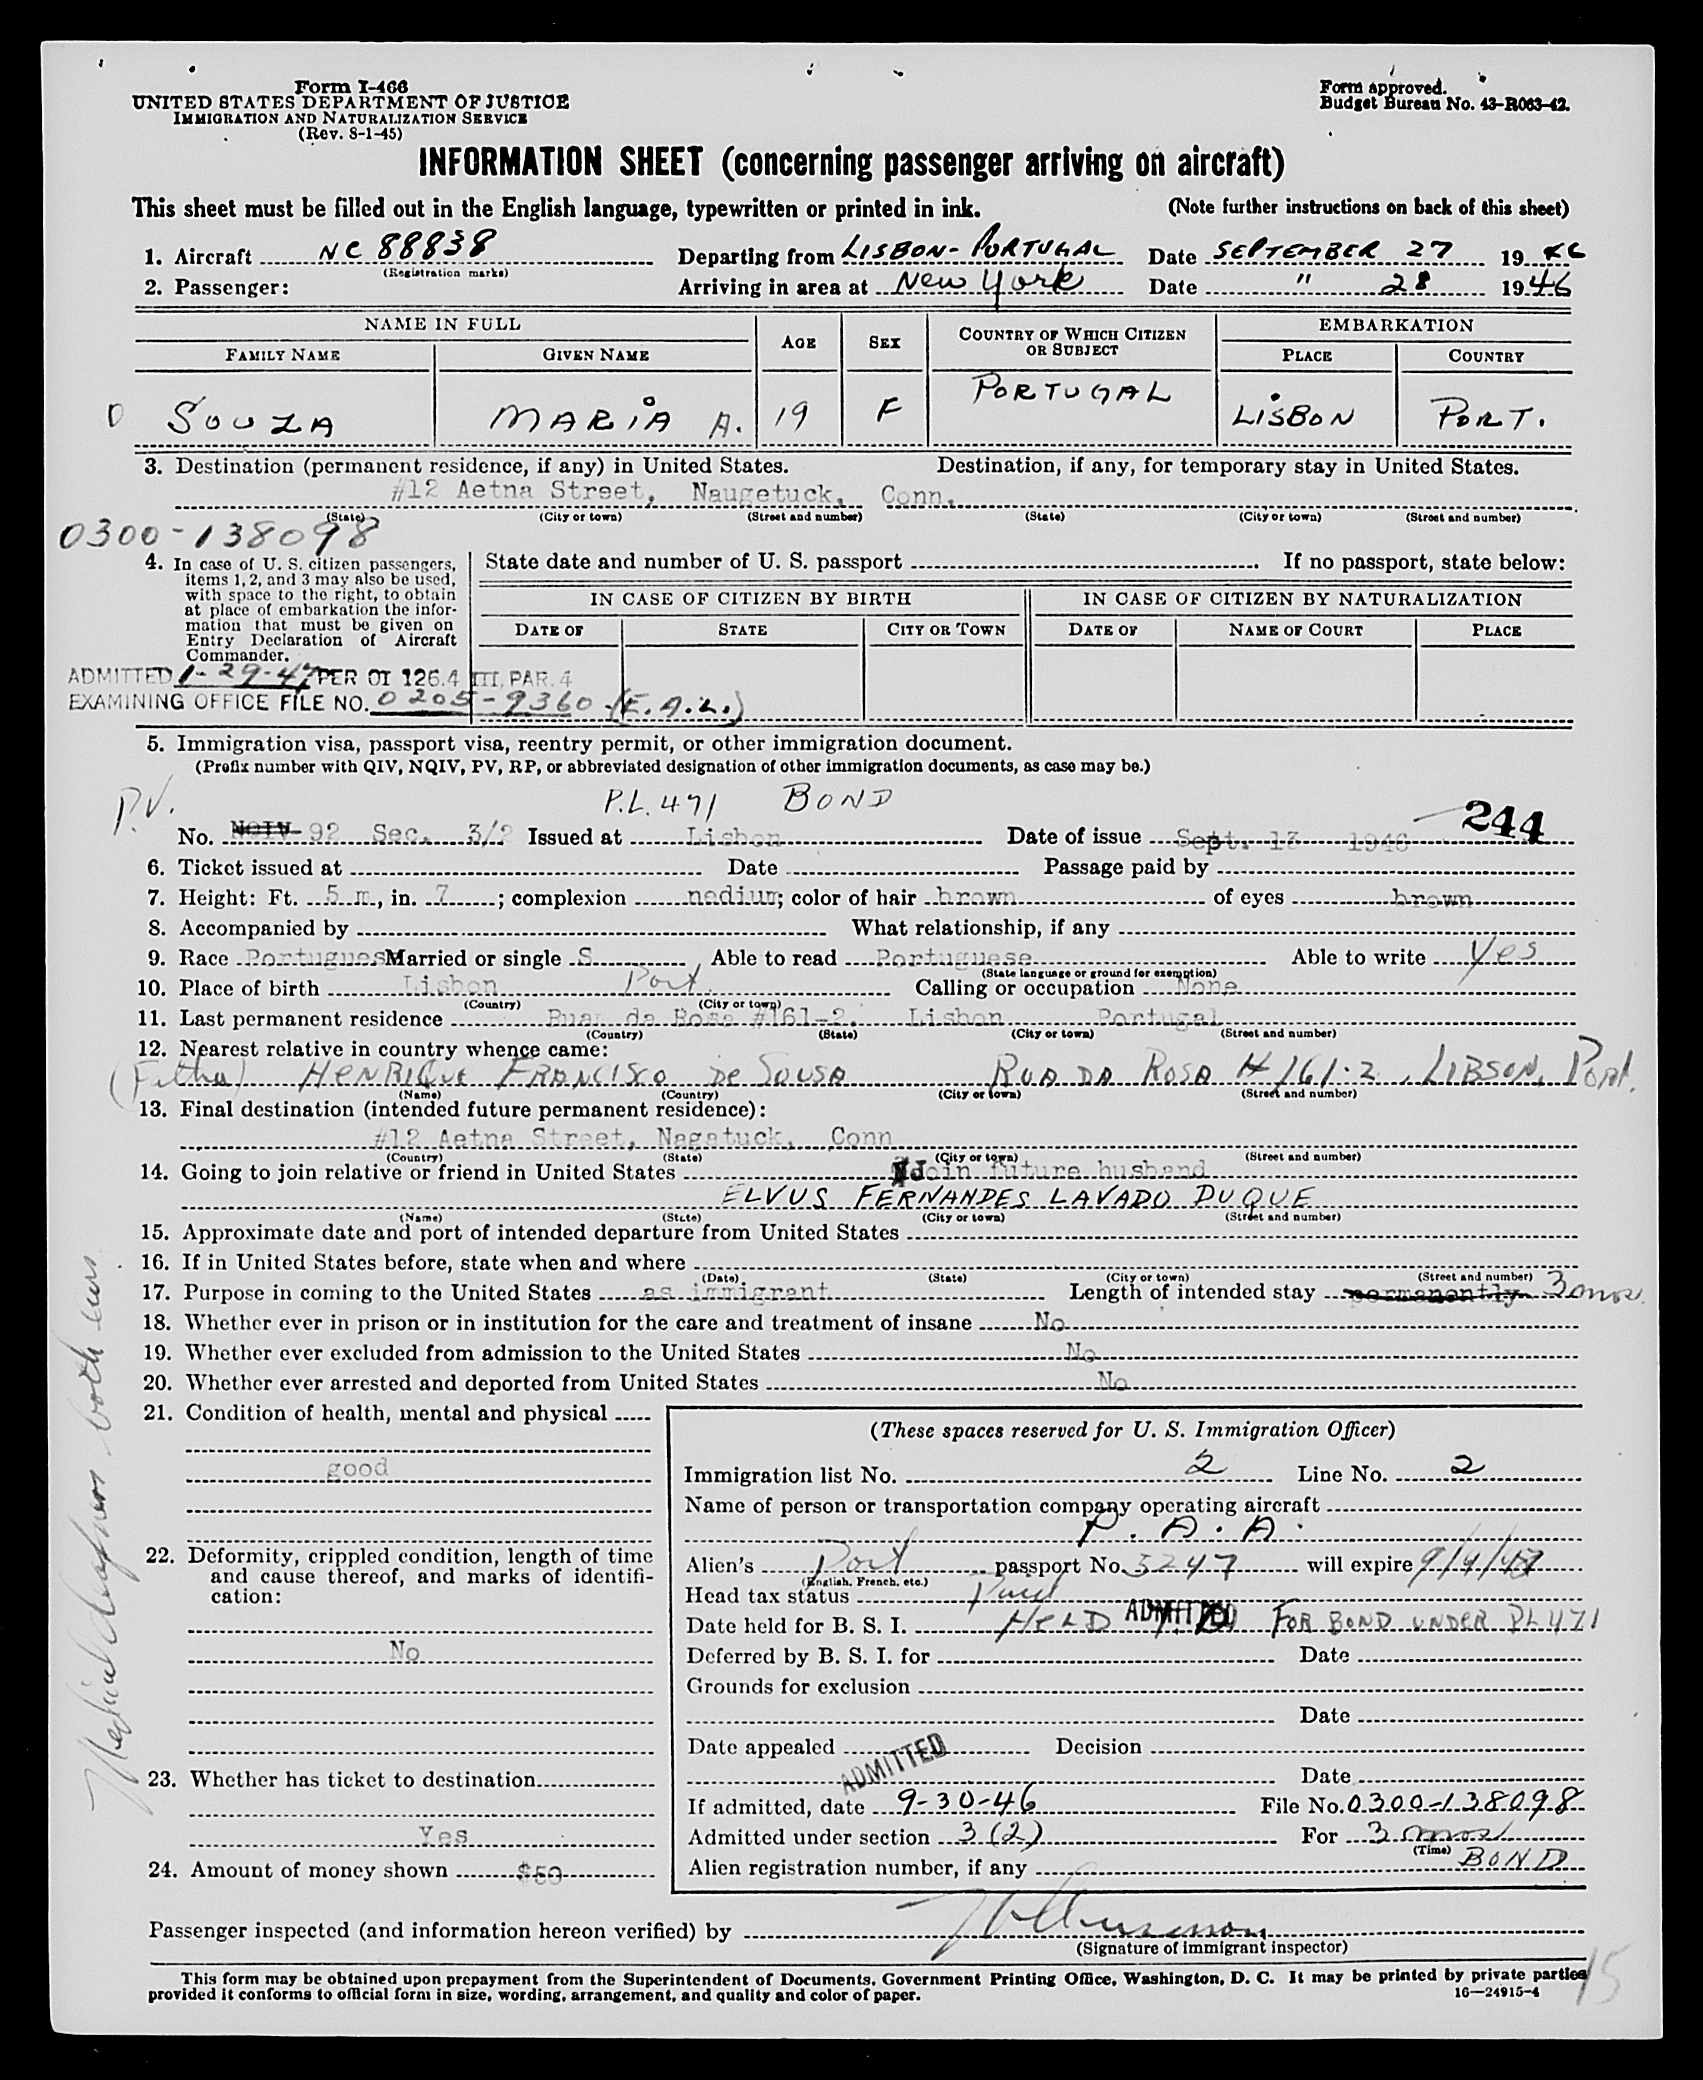 Form I-466
UNITED STATES DEPARTMENT OF JUSTICE
IMMIGRATION AND NATURALIZATION SERVICE
(Rev. 8-1-45)
Form approved.
Budget Bureau No. 43-R063-42.
INFORMATION SHEET (concerning passenger arriving on aircraft)
This sheet must be filled out in the English language, typewritten or printed in ink. (Note further instructions on back of this sheet)
1. Aircraft NC 88838 Departing from LISBON-PORTUGAL Date SEPTEMBER 27 19 46
(Registration marks)
2. Passenger: Arriving in area at New York Date " 28 1946
NAME IN FULL AGE SEX COUNTRY OF WHICH CITIZEN OR SUBJECT EMBARKATION
FAMILY NAME GIVEN NAME PLACE COUNTRY
SOUZA MARIA A. 19 F PORTUGAL LISBON PORT.
3. Destination (permanent residence, if any) in United States. Destination, if any, for temporary stay in United States.
#12 Aetna Street, Naugetuck, Conn.
(State) (City or town) (Street and number) (State) (City or town) (Street and number)
0300-138098
4. In case of U. S. citizen passengers, items 1, 2, and 3 may also be used, with space to the right, to obtain at place of embarkation the information that must be given on Entry Declaration of Aircraft Commander.
State date and number of U. S. passport . If no passport, state below:
IN CASE OF CITIZEN BY BIRTH IN CASE OF CITIZEN BY NATURALIZATION
DATE OF STATE CITY OR TOWN DATE OF NAME OF COURT PLACE
ADMITTED 1-29-47 PER OI 126.4 III, PAR. 4
EXAMINING OFFICE FILE NO. 0205-9360 (E.A.L.)
5. Immigration visa, passport visa, reentry permit, or other immigration document.
(Prefix number with QIV, NQIV, PV, RP, or abbreviated designation of other immigration documents, as case may be.)
P.V. P.L. 471 BOND 244
No. NQIV 92 Sec. 3/2 Issued at Lisbon Date of issue Sept. 13 1946
6. Ticket issued at Date Passage paid by
7. Height: Ft. 5 m, in. 7; complexion medium; color of hair brown of eyes brown
8. Accompanied by What relationship, if any
9. Race Portugues Married or single S Able to read Portuguese Able to write Yes
(State language or ground for exemption)
10. Place of birth Lisbon Port. Calling or occupation None
(Country) (City or town)
11. Last permanent residence Rua da Rosa #161-2, Lisbon Portugal
(Country) (State) (City or town) (Street and number)
12. Nearest relative in country whence came:
HENRIQUE FRANCISCO DE SOUSA RUA DA ROSA # 161-2, LIBSON, PORT.
(Name) (Country) (City or town) (Street and number)
13. Final destination (intended future permanent residence):
#12 Aetna Street, Nagatuck, Conn
(Country) (State) (City or town) (Street and number)
14. Going to join relative or friend in United States Join future husband
ELVUS FERNANDES LAVADO DUQUE
(Name) (State) (City or town) (Street and number)
15. Approximate date and port of intended departure from United States
16. If in United States before, state when and where
(Date) (State) (City or town) (Street and number)
17. Purpose in coming to the United States as immigrant Length of intended stay permanently 3 mos.
18. Whether ever in prison or in institution for the care and treatment of insane No
19. Whether ever excluded from admission to the United States No
20. Whether ever arrested and deported from United States No
21. Condition of health, mental and physical
good
22. Deformity, crippled condition, length of time and cause thereof, and marks of identification:
No
23. Whether has ticket to destination
Yes
24. Amount of money shown $50
Medical deafness both ears
(These spaces reserved for U. S. Immigration Officer)
Immigration list No. 2 Line No. 2
Name of person or transportation company operating aircraft
P. A. A.
Alien's Port passport No. 3247 will expire 9/4/48
(English, French, etc.)
Head tax status Paid
Date held for B. S. I. HELD ADMITTED FOR BOND UNDER PL 471
Deferred by B. S. I. for Date
Grounds for exclusion
Date
Date appealed Decision
ADMITTED
Date
If admitted, date 9-30-46 File No. 0300-138098
Admitted under section 3(2) For 3 mos
(Time)
BOND
Alien registration number, if any
Passenger inspected (and information hereon verified) by
(Signature of immigrant inspector)
This form may be obtained upon prepayment from the Superintendent of Documents, Government Printing Office, Washington, D. C. It may be printed by private parties
provided it conforms to official form in size, wording, arrangement, and quality and color of paper.
16—24915-4
15